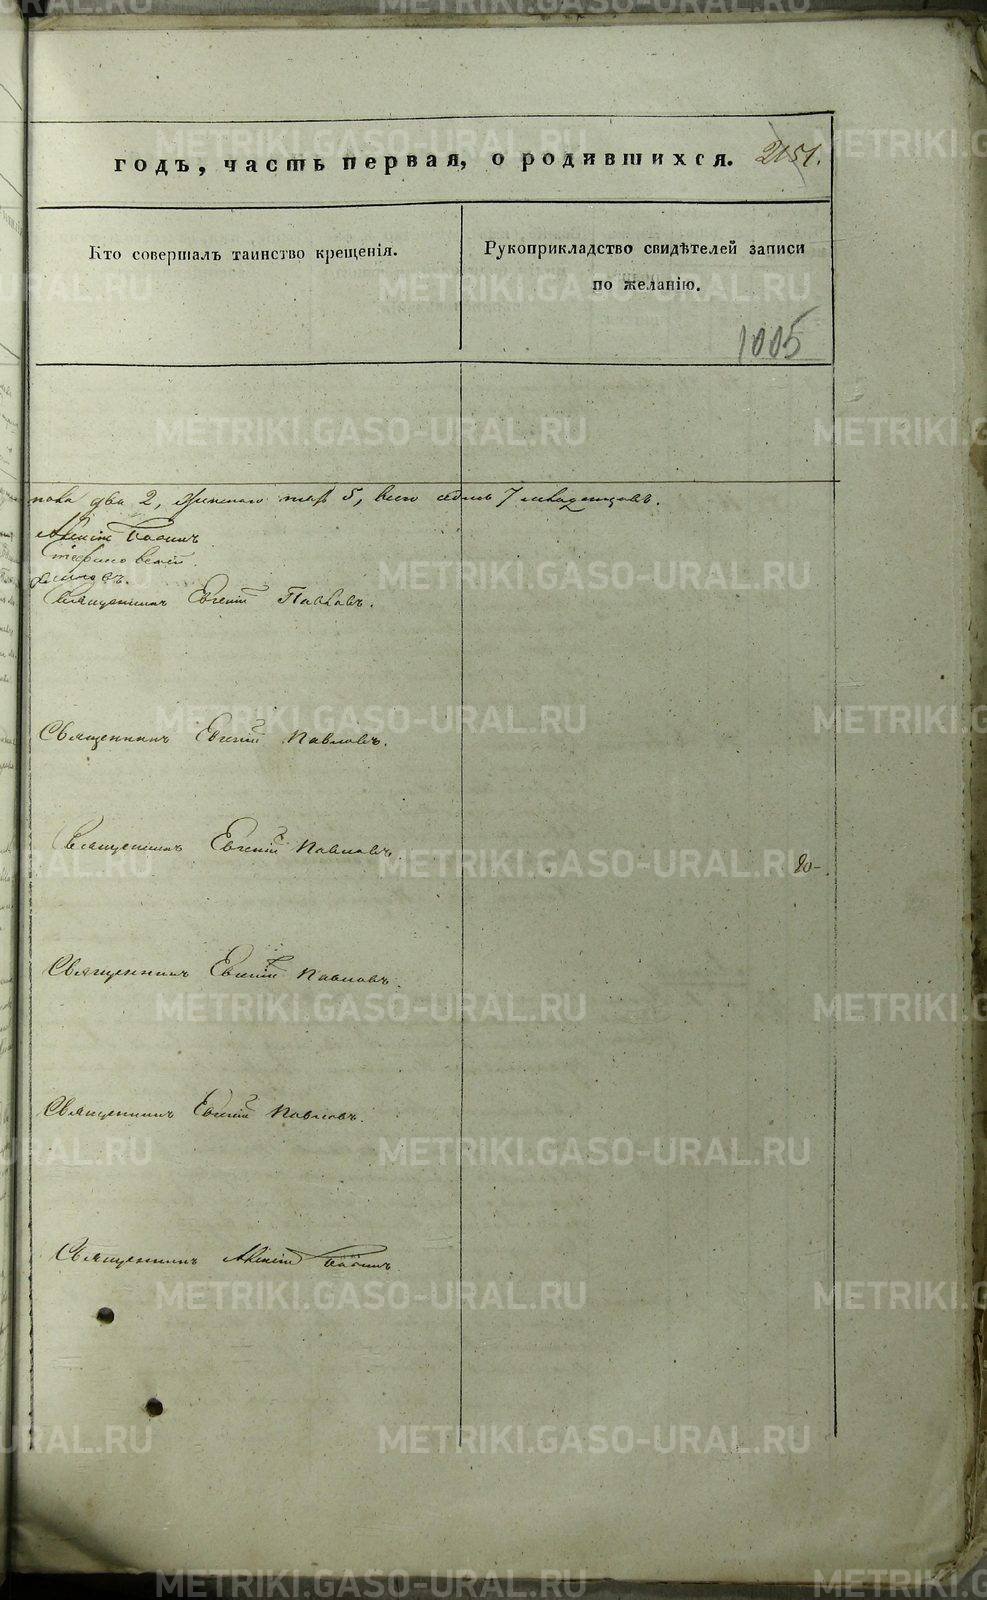 годъ, часть первая, о родившихся. 2151.
Кто совершалъ таинство крещенія.
Рукоприкладство свидѣтелей записи
по желанію.
1005
пола два 2, женскаго пола 5, всего семь 7 младенцовъ.
Священникъ Евгеній Павловъ.
Священникъ Евгеній Павловъ.
Священникъ Евгеній Павловъ.
Священникъ Евгеній Павловъ.
Священникъ Евгеній Павловъ.
Священникъ
METRIKI.GASO-URAL.RU